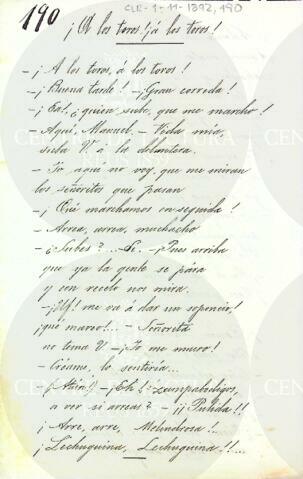 190
CLR-1-11-1892,190
¡Á los toros! ¡á los toros!
- ¡A los toros, á los toros!
- ¡Buena tarde! - ¡Gran corrida!
- ¡Ea!, ¿quién sube, que me marcho!
- Aquí, Manuel. - Vida mía,
suba V á la delantera.
- Yo aquí no voy, que me miran
los señoritos que pasan
- ¡Qué marchamos en seguida!
- Arrea, arrea, muchacho
- ¿Subes?... - Sí. - Pues arriba
que ya la gente se pára
y con recelo nos mira.
- ¡Uy! me va á dar un soponcio!
¡que mareo!... - Señorita
no tema V - ¡Yo me muero!
- Créame, lo sentiría...
- ¡Eh! zampabodigos,
a ver si arreas? - ¡¡Pulida!!
¡Arre, arre, Melindrosa!
¡Lechuguina, Lechuguina!!...